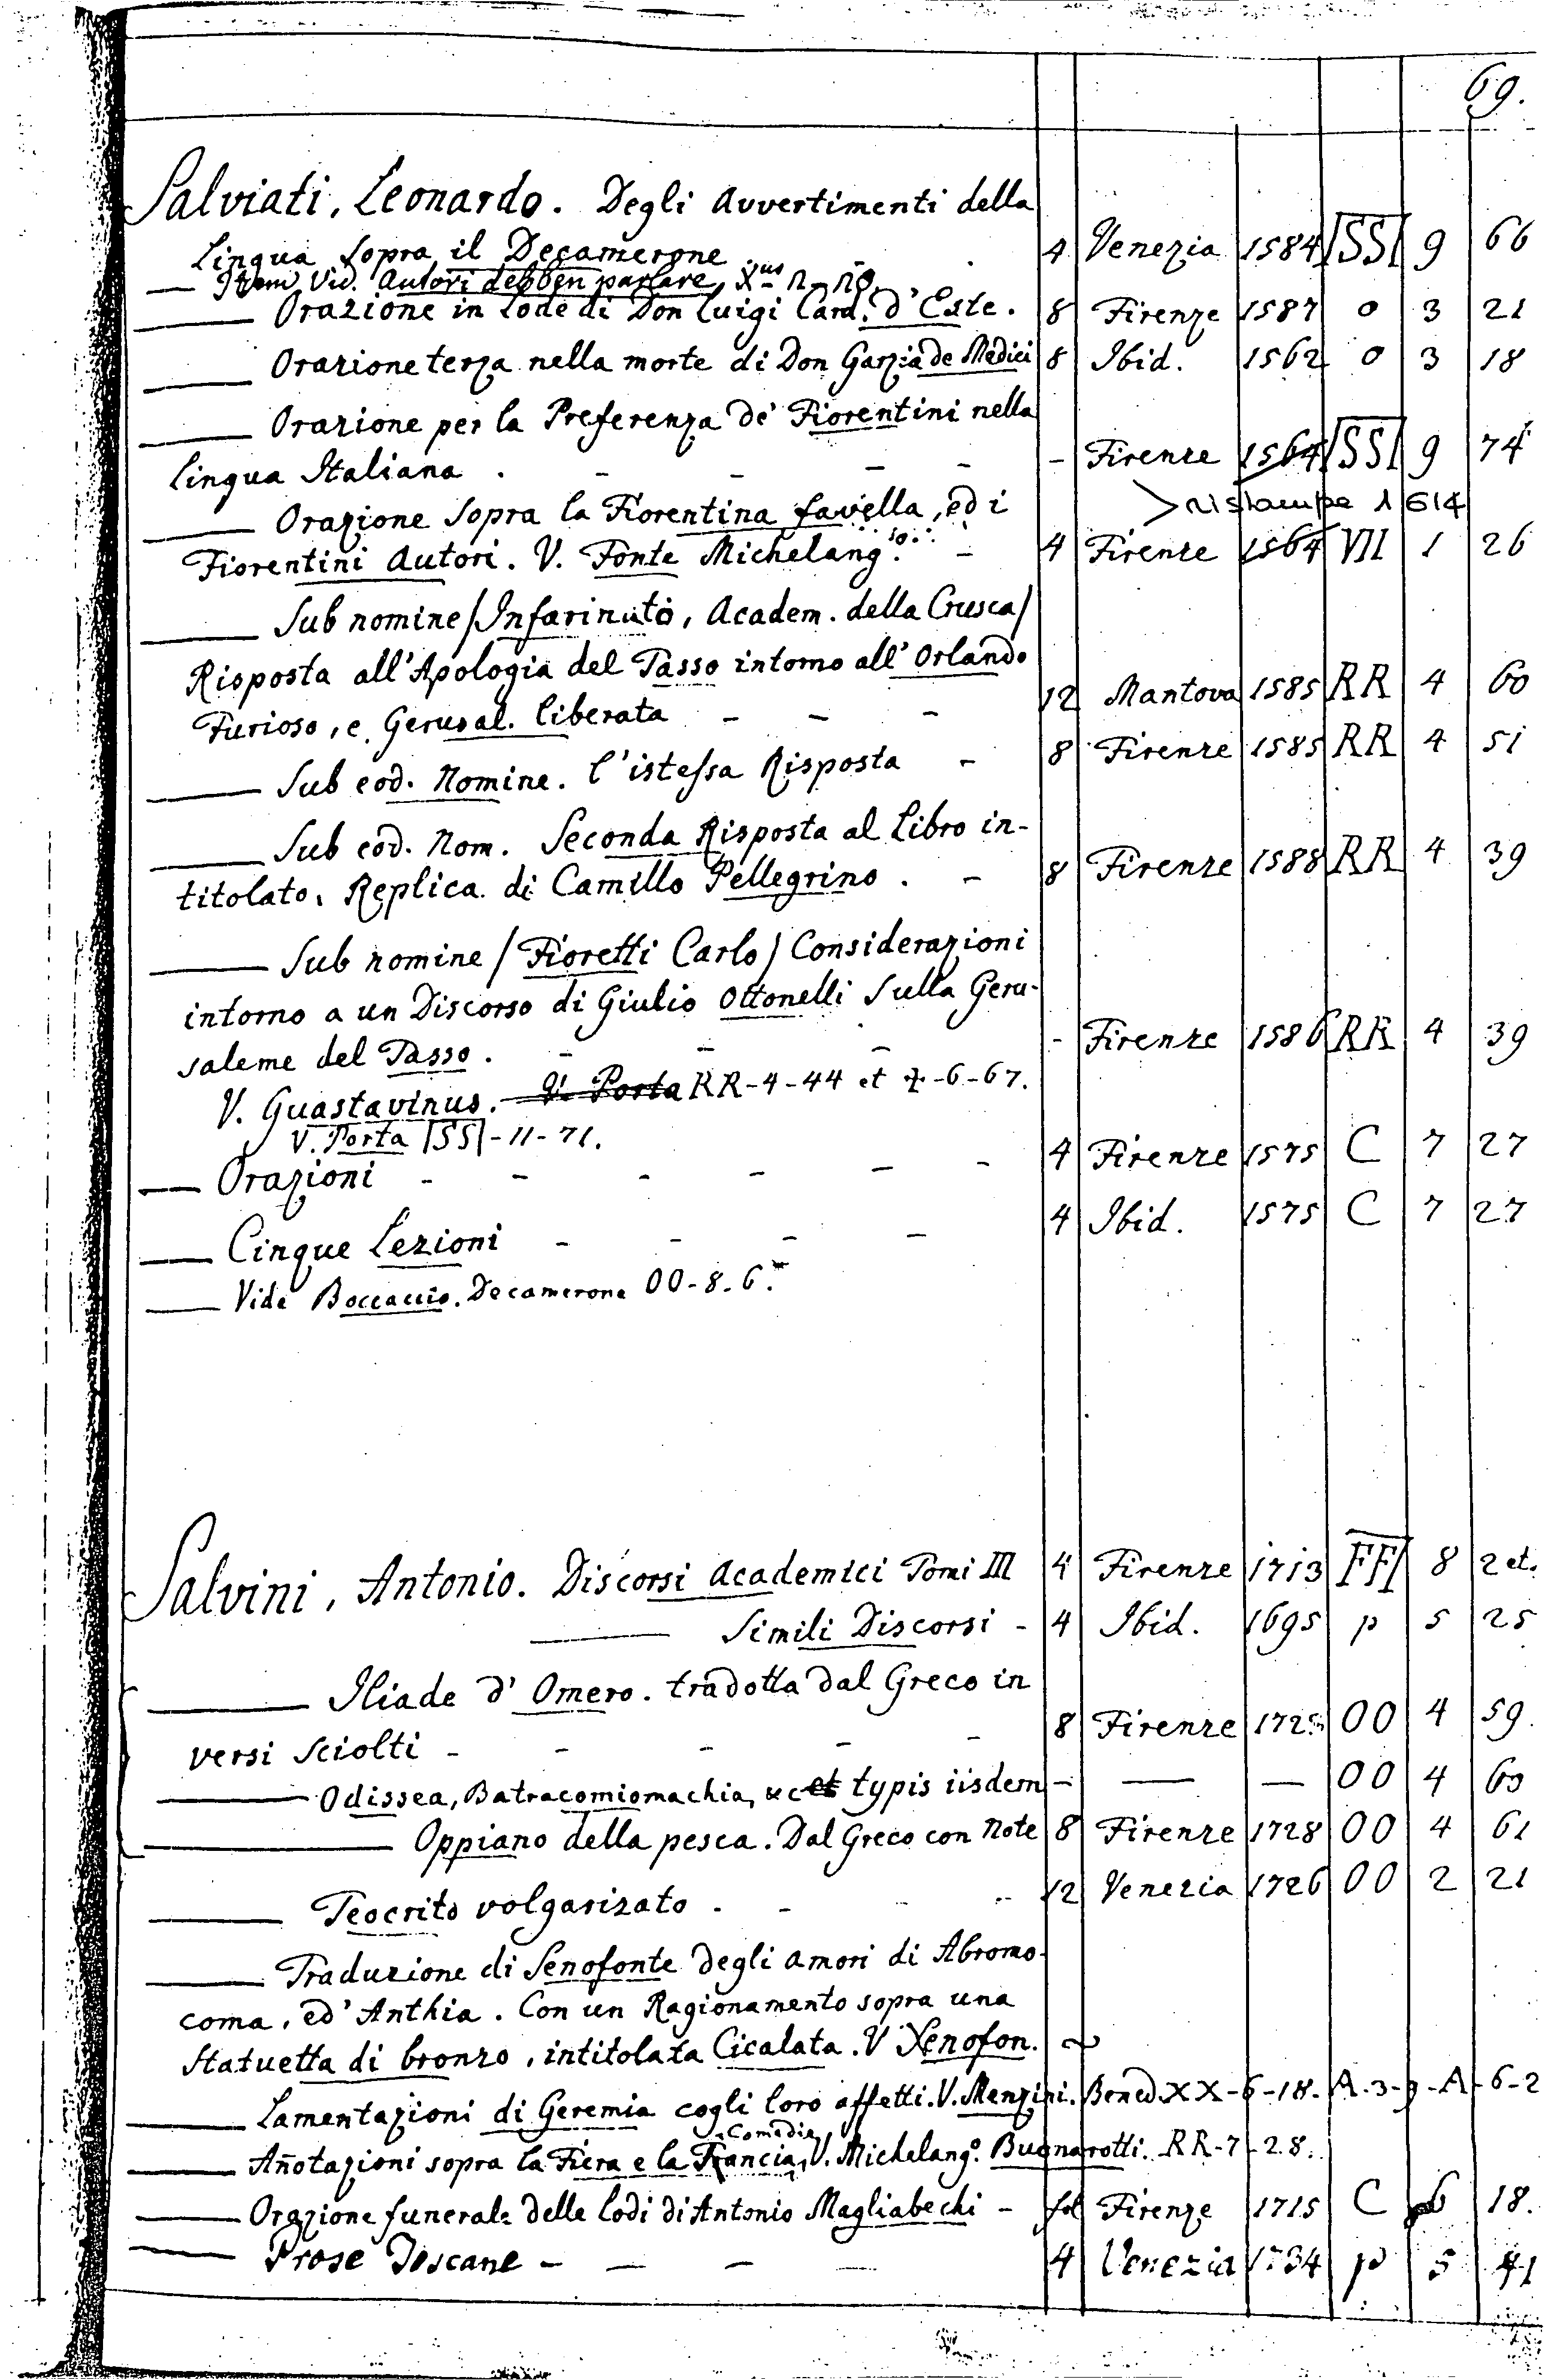 69.
Salviati, Leonardo. Degli Avvertimenti della
Lingua sopra il Decamerone . . 4 Venezia 1584 |SS| 9 66
— Item Vid. Autori debben parlare, X
— Orazione in lode di Don Luigi Card. d'Este. 8 Firenze 1587 o 3 21
— Orazione terza nella morte di Don Garzia de Medici 8 Ibid. 1562 o 3 18
— Orazione per la Preferenza de' Fiorentini nella
lingua Italiana . - - - - - Firenze 1564 |SS| 9 74
> ristampe 1614
— Orazione sopra la Fiorentina favella, ed i
Fiorentini Autori. V. Fonte Michelang.lo - 4 Firenze 1564 VII 1 26
— Sub nomine /Infarinato, Academ. della Crusca/
Risposta all'Apologia del Tasso intorno all'Orlando
Furioso, e Gerusal. liberata - - - 12 Mantova 1585 RR 4 60
— Sub eod. Nomine. l'istessa Risposta - 8 Firenze 1585 RR 4 51
— Sub eod. Nom. Seconda Risposta al Libro in-
titolato, Replica di Camillo Pellegrino . - 8 Firenze 1588 RR 4 39
— Sub nomine /Fioretti Carlo/ Considerazioni
intorno a un Discorso di Giulio Ottonelli sulla Geru-
saleme del Tasso. - - - - Firenze 1586 RR 4 39
V. Guastavinus. V. Porta RR-4-44 et z-6-67.
V. Porta |SS|-11-71.
— Orazioni - - - - - - 4 Firenze 1575 C 7 27
— Cinque Lezioni - - - - 4 Ibid. 1575 C 7 27
— Vide Boccaccio. Decamerone OO-8-6.
Salvini, Antonio. Discorsi Academici Tomi III 4 Firenze 1713 FF| 8 2 et.
— Simili Discorsi - 4 Ibid. 1695 p 5 25
— Iliade d'Omero. tradotta dal Greco in
versi Sciolti - - - - - 8 Firenze OO 4 59.
— Odissea, Batracomiomachia, &c et typis iisdem - — — OO 4 60
— Oppiano della pesca. Dal Greco con Note 8 Firenze 1728 OO 4 61
— Teocrito volgarizato . - - 12 Venezia 1726 OO 2 21
— Traduzione di Senofonte degli amori di Abromo-
coma, ed'Anthia. Con un Ragionamento sopra una
Statuetta di bronzo, intitolata Cicalata. V Xenofon. ~
— Lamentazioni di Geremia cogli loro affetti. V. Menzini. Bened. XX-6-18. A-3-9-A-6-2
Comedie
— Añotazioni sopra la Fiera e la Trancia, V. Michelang.o Buonarotti. RR-7-28.
— Orazione funerale delle lodi di Antonio Magliabechi - fol Firenze 1715 C 6 18.
— Prose Toscane - - - - 4 Venezia 1734 p 5 41